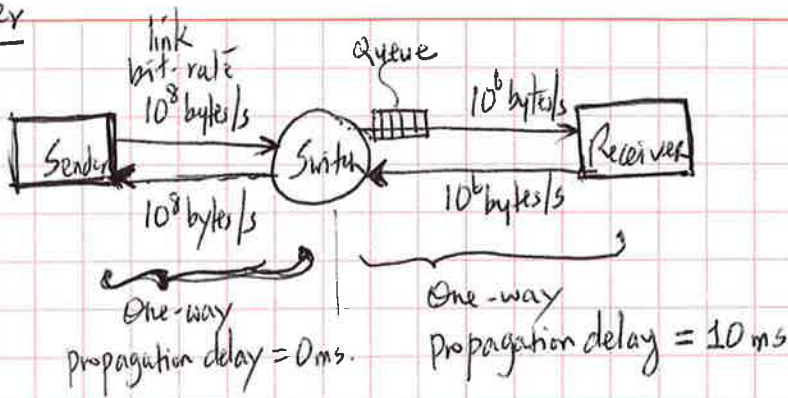 link
bit-rate
10⁸ bytes/s
Queue
10⁶ bytes/s
Sender
Switch
Receiver
10⁸ bytes/s
10⁶ bytes/s
One-way
propagation delay = 0ms.
One-way
propagation delay = 10 ms